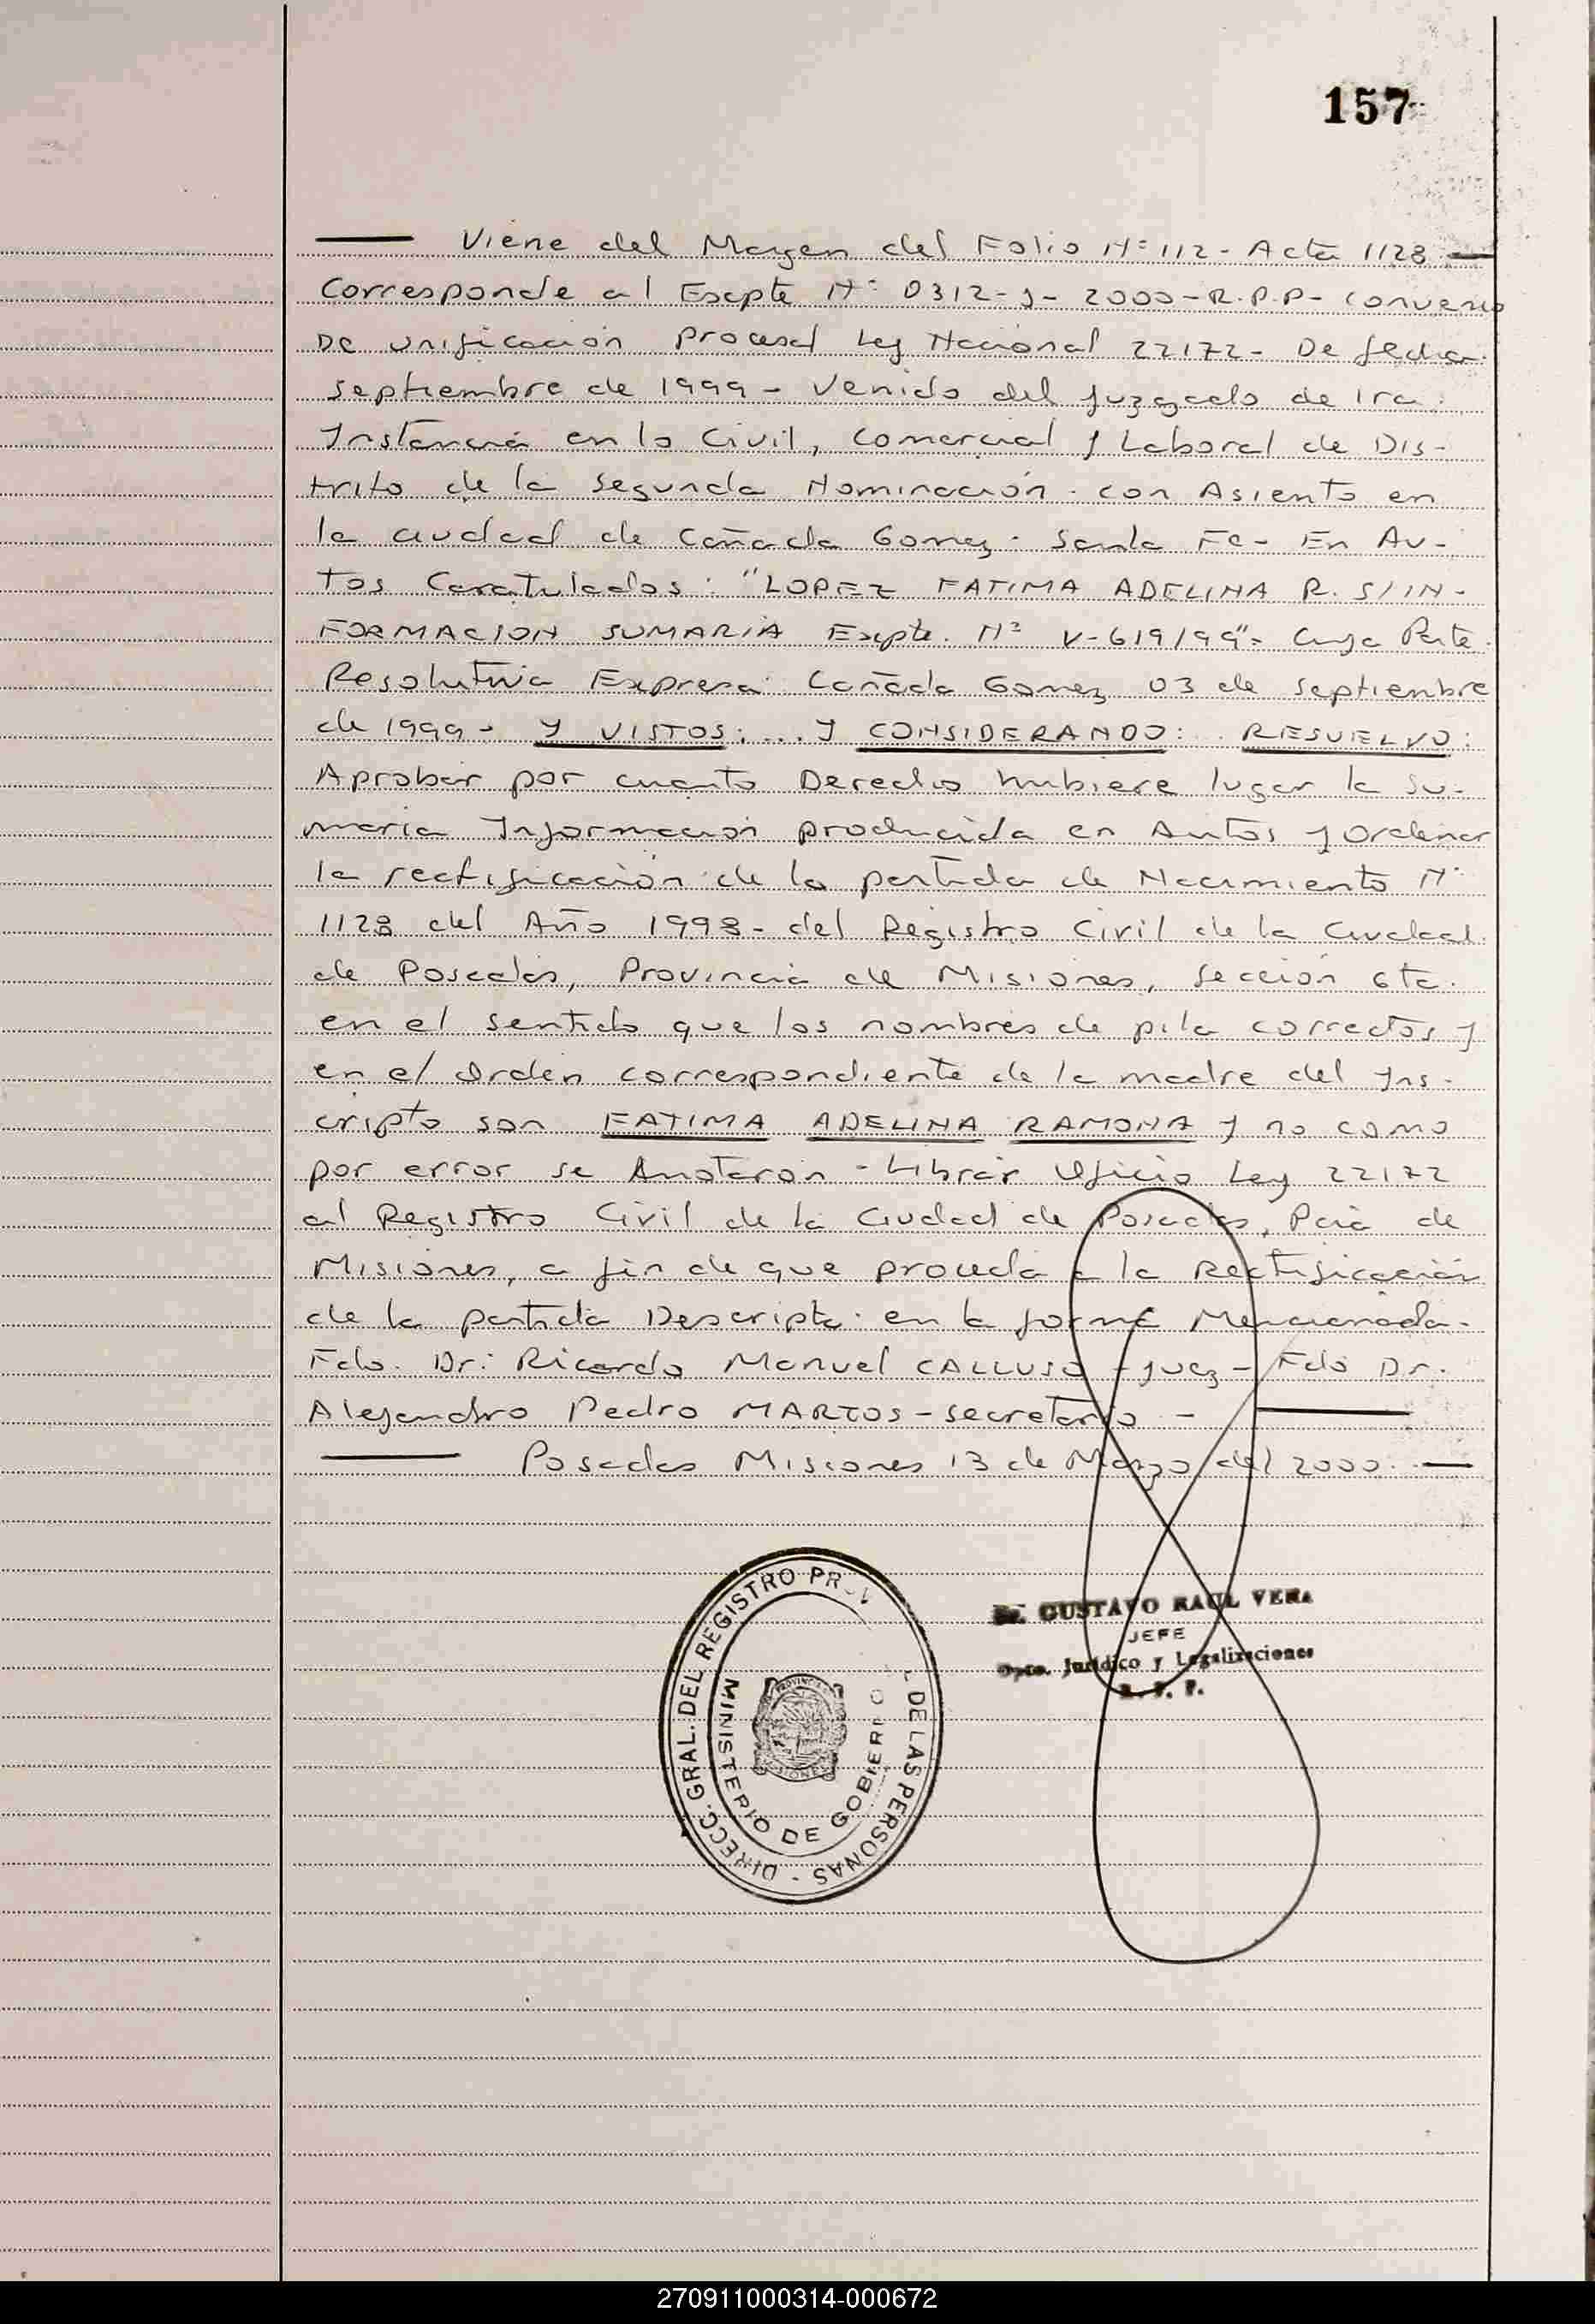 157
Viene del Margen del Folio Nº 112 - Acta 1128
Corresponde al Exepte Nº 0312-J- 2000 - R.P.P- Convenio
De unificación Procesal Ley Nacional 22172 - De fecha
septiembre de 1999 - Venido del Juzgado de 1ra.
Instancia en lo Civil, Comercial y Laboral de Dis-
trito de la Segunda Nominación - con Asiento en
la ciudad de Cañada Gomez - Santa Fe - En Au-
tos Caratulados: "LOPEZ FATIMA ADELINA R. S/IN-
FORMACION SUMARIA Exepte. Nº V-619/99"- Cuya Parte
Resolutiva Expresa: Cañada Gomez 03 de septiembre
de 1999 - Y VISTOS: ... Y CONSIDERANDO: . RESUELVO:
Aprobar por cuanto Derecho hubiere lugar la Su-
maria Información producida en Autos y Ordenar
la rectificación de la partida de Nacimiento Nº
1128 del Año 1998 - del Registro Civil de la Ciudad
de Posadas, Provincia de Misiones, sección 6ta.
en el sentido que los nombres de pila correctos y
en el orden correspondiente de la madre del Ins-
cripto son FATIMA ADELINA RAMONA y no como
por error se Anotaron - Librar Oficio Ley 22172
al Registro Civil de la Ciudad de Posadas, Pcia de
Misiones, a fin de que proceda a la Rectificación
de la partida Descripta en la forma Mencionada -
Fdo. Dr: Ricardo Manuel CALLUSO - Juez - Fdo Dr.
Alejandro Pedro MARTOS - secretario -
Posadas Misiones 13 de Marzo del 2000.
DIRECC. GRAL. DEL REGISTRO PR DE LAS PERSONAS -
MINISTERIO DE GOBIERNO
PROVINCIA
MISIONES
Dr. GUSTAVO RAUL VERA
JEFE
Dpto. Jurídico y Legalizaciones
R. P. P.
270911000314-000672